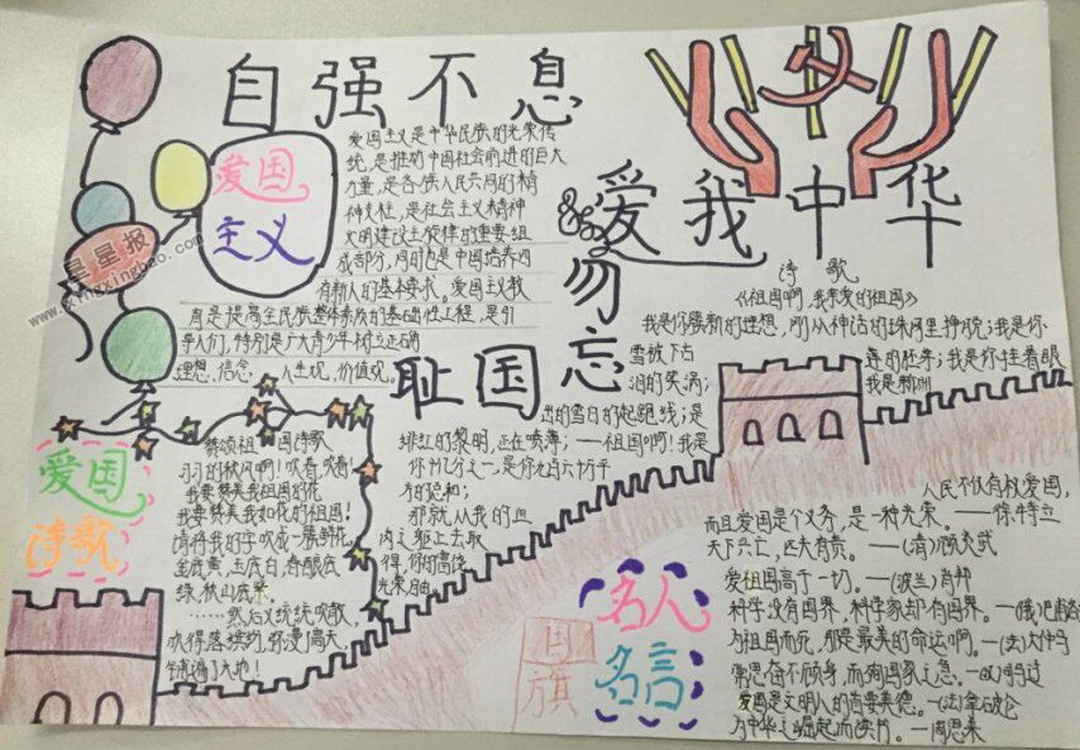 自强不息
爱国
主义
爱国主义是中华民族的光荣传
统,是推动中国社会前进的巨大
力量,是各族人民共同的精
神支柱,是社会主义精神
文明建设主旋律的重要组
成部分,同时也是中国培养四
有新人的基本要求。爱国主义教
育是提高全民族整体素质的基础性工程,是引
导人们,特别是广大青少年树立正确
理想、信念、人生观,价值观。
勿忘
国耻
爱我中华
诗歌
《祖国啊,我亲爱的祖国》
我是你簇新的理想,刚从神话的蛛网里挣脱;我是你
雪被下古
莲的胚芽;我是你挂着眼
泪的笑涡;
我是新刷
出的雪白的起跑线;是
绯红的黎明,正在喷薄;——祖国啊!我是
你十亿分之一,是你九百六十万平
方的总和;
那就从我的血
肉之躯上去取
得,你的富饶
光荣,自由
爱国
诗歌
赞颂祖国诗歌
羽羽的秋风啊!吹着,吹着!
我要赞美我祖国的花
我要赞美我如花的祖国!
请将我的字吹成一簇鲜花,
金底黄,玉底白,春酿底
绿,秋山底紫,
……然后又统统吹散,
吹得落英缤纷,弥漫了高天,
铺遍了大地!
人民不仅有权爱国,
而且爱国是个义务,是一种光荣。——徐特立
天下兴亡,匹夫有责。——(清)顾炎武
爱祖国高于一切。——(波兰)肖邦
科学没有国界,科学家却有国界。—(俄)巴甫洛
为祖国而死,那是最美的命运啊。—(法)大仲马
常思奋不顾身,而殉国家之急。—(汉)司马迁
爱国是文明人的首要美德。—(法)拿破仑
为中华之崛起而读书。—周恩来
名人
名言
国
旗
星星报
www.xingxingbao.com